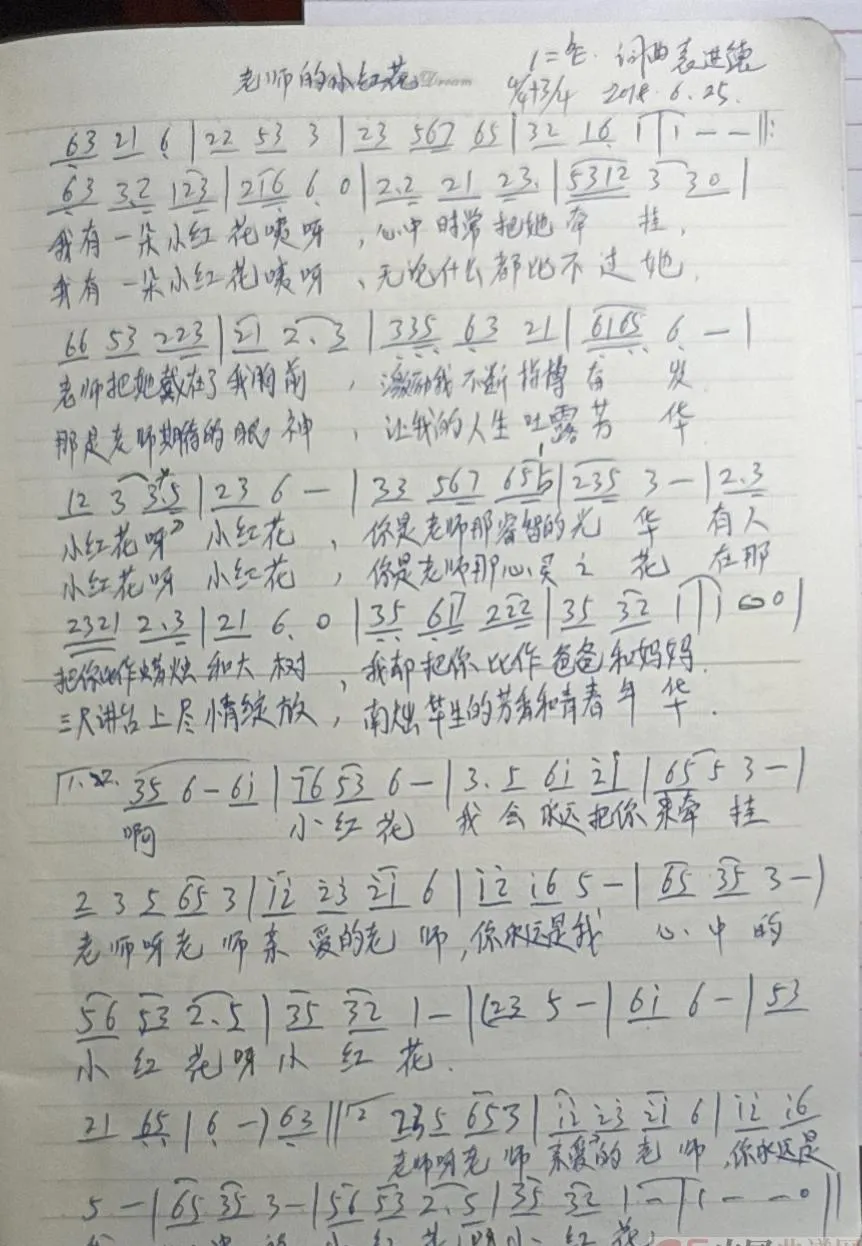 老师的小红花 Dream
1=E 词曲袁进德
4/4+3/4 2018.6.25.
63 21 6 | 22 53 3 | 23 567 65 | 32 16 1 | 1 - - ‖:
63 3.2 123 | 216 6 0 | 2.2 21 23. | 5312 3 30 |
我有一朵小红花咦呀,心中时常把她牵挂,
我有一朵小红花咦呀、无论什么都比不过她.
66 53 223 | 21 2. 3 | 335 63 21 | 6165 6 - |
老师把她戴在了我胸前,激励我不断拼搏奋发
那是老师期待的眼神,让我的人生吐露芳华
12 3 3.5 | 23 6 - | 33 567 65 | 235 3 - | 2.3
小红花呀 小红花,你是老师那睿智的光华 有人
小红花呀 小红花,你是老师那心灵之花 在那
2321 2.3 | 21 6. 0 | 35 61 222 | 35 32 1 | 1 0 0 |
把你比作蜡烛和大树,我却把你比作爸爸和妈妈.
三尺讲台上尽情绽放,毕生的芳香和青春年华.
1. 35 6 - 6i | i6 53 6 - | 3. 5 6i 2i | 65 5 3 - |
啊 小红花 我会永远把你来牵挂
2 3 5 65 3 | i2 i3 2i 6 | i2 i6 5 - | 65 35 3 - |
老师呀老师亲爱的老师,你永远是我心中的
56 53 2.5 | 35 32 1 - | (23 5 - | 6i 6 - | 53
小红花呀小红花.
21 65 | 6 -) 63 ‖ 2 235 653 | i2 i3 2i 6 | i2 i6
老师呀老师亲爱的老师,你永远是
5 - | 65 35 3 - | 56 53 2. 5 | 35 32 1 - | 1 - - 0 ‖
小红花呀小红花